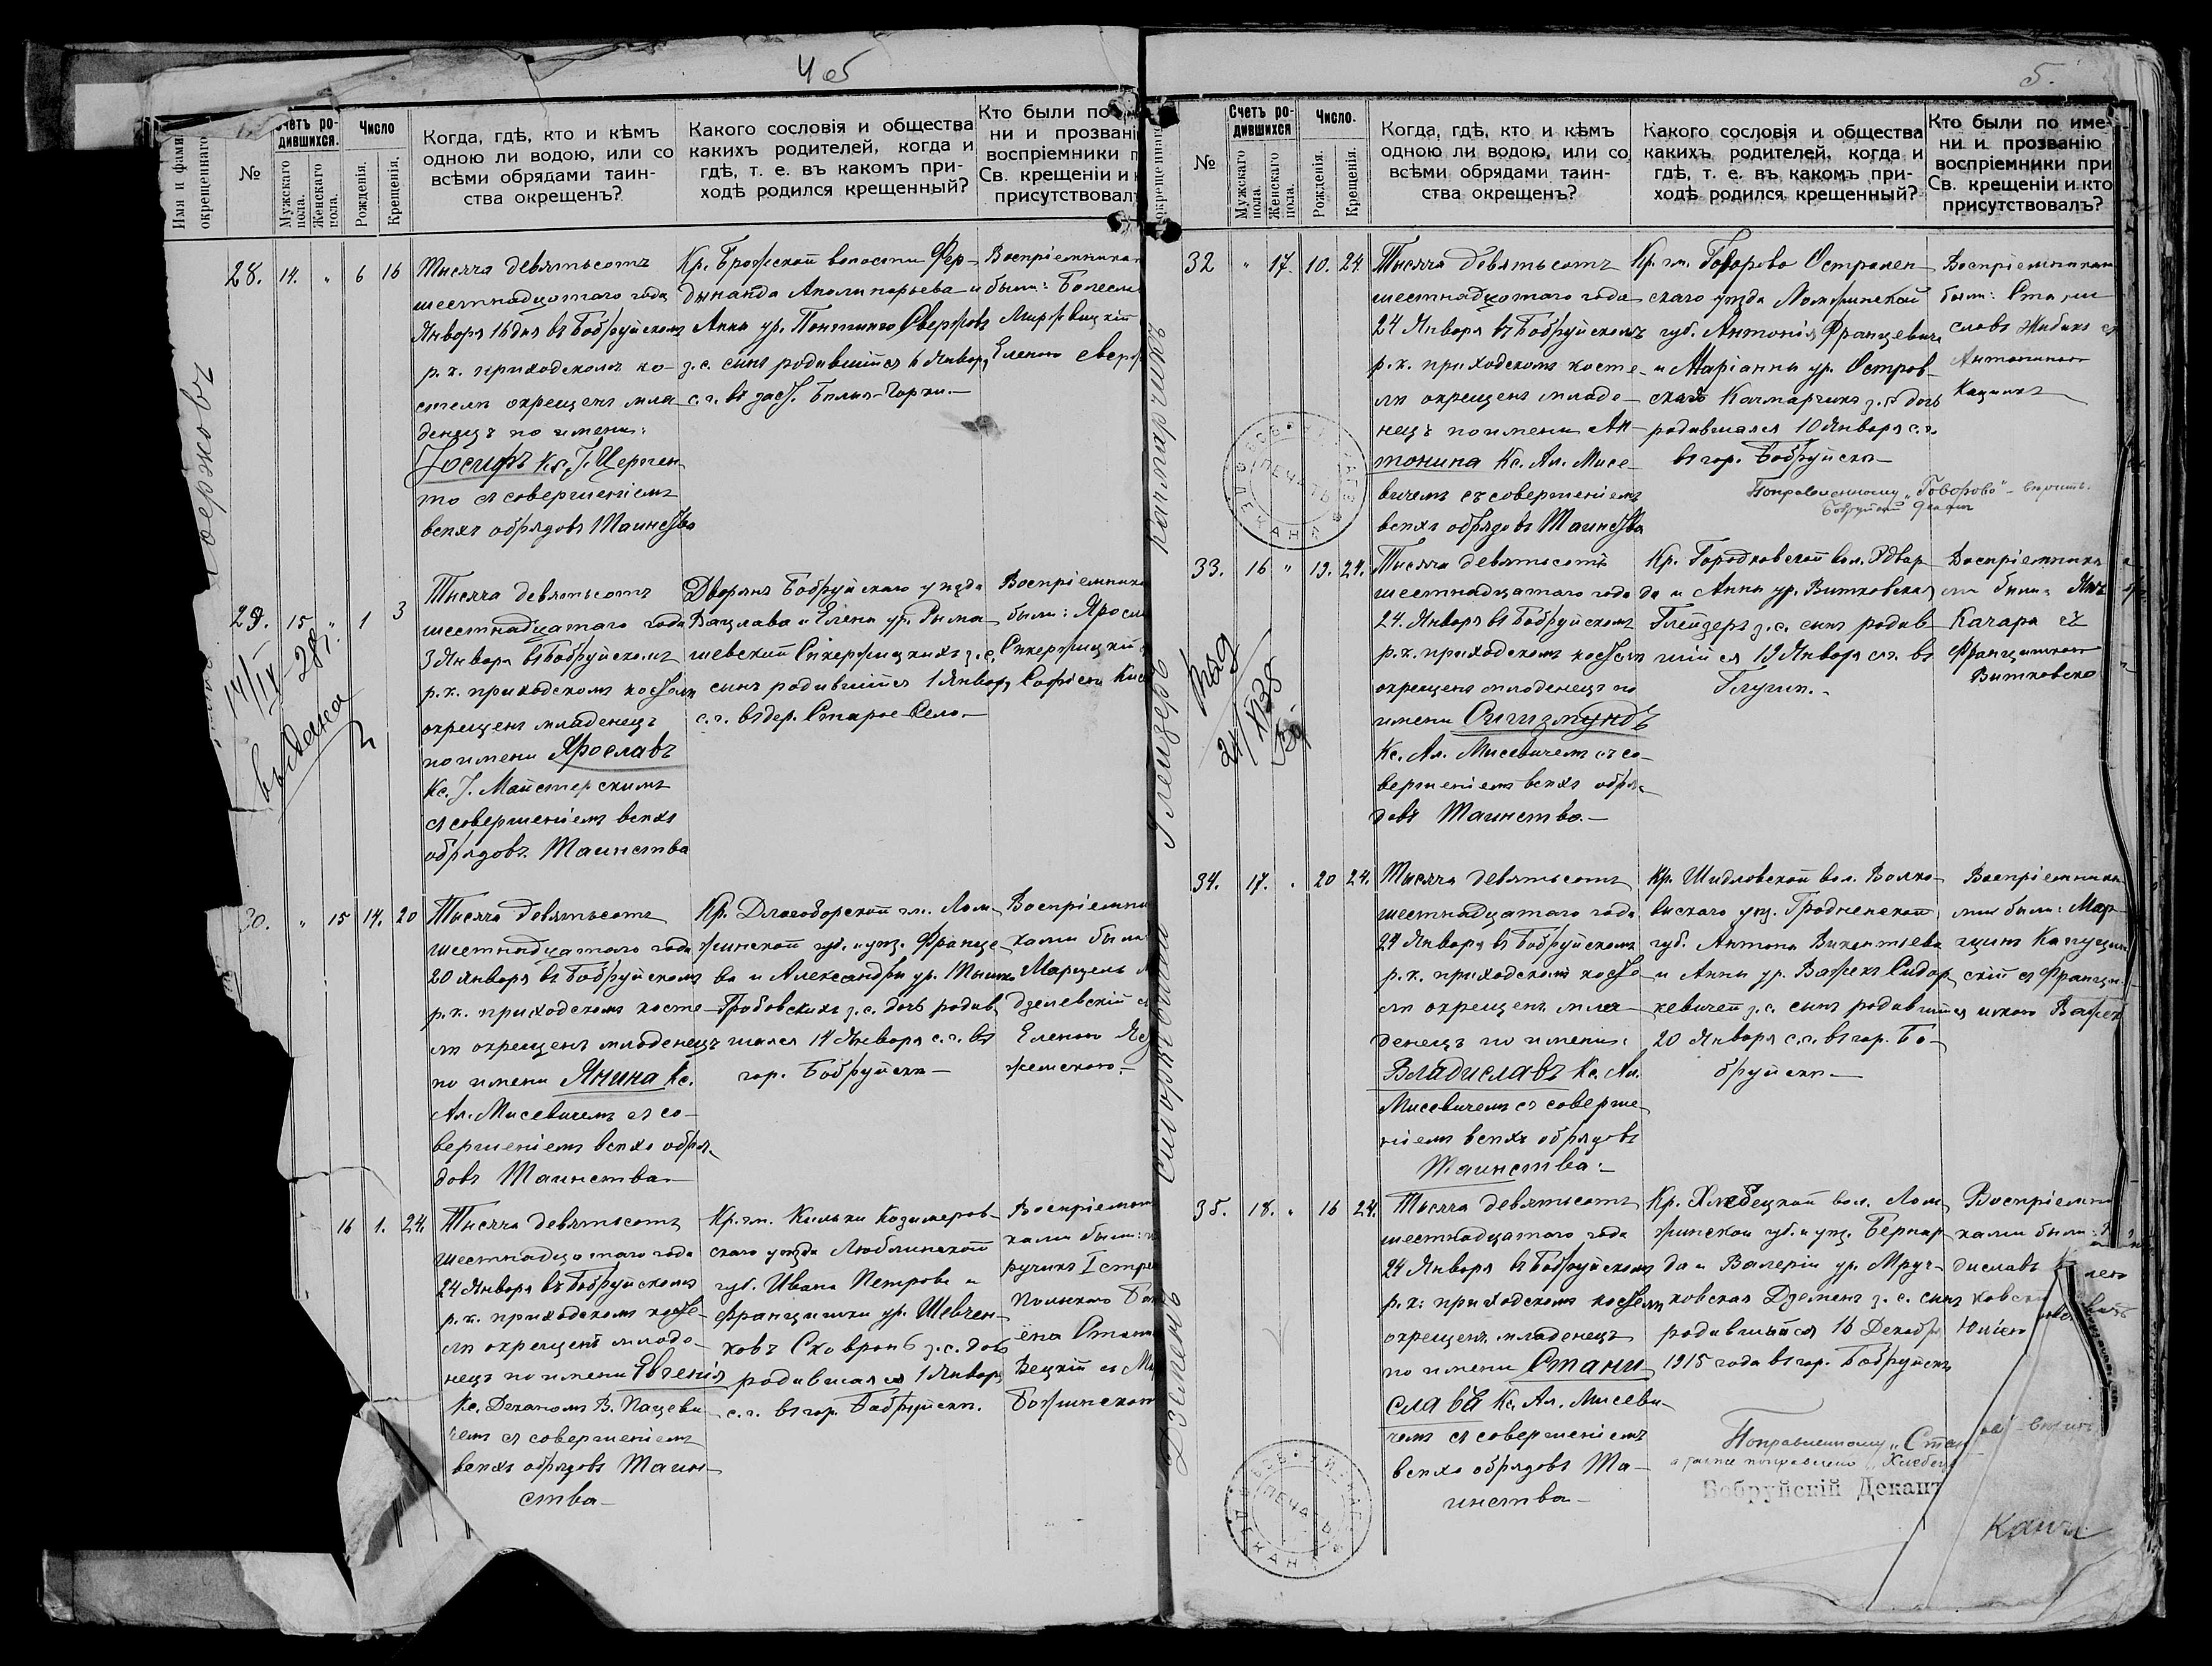 4 об
Имя и фами
окрещеннаго
№
Счетъ ро-
дившихся.
Мужскаго
пола.
Женскаго
пола.
Число
Рожденія.
Крещенія.
Когда, гдѣ, кто и кѣмъ
одною ли водою, или со
всѣми обрядами таин-
ства окрещенъ?
Какого сословія и общества
какихъ родителей, когда и
гдѣ, т. е. въ какомъ при-
ходѣ родился крещенный?
Кто были по
ни и прозвані
воспріемники п
Св. крещеніи и к
присутствовал
28. 14. " 6 16
Тысяча девятьсотъ
шестнадцатаго года
Января 16 дня въ Бобруйскомъ
р. к. приходскомъ ко-
стелѣ окрещенъ мла
денецъ по имени:
Іосифъ Кс. І.
съ совершеніемъ
всѣхъ обрядовъ Таинства
Кр. Брожской волости Фер-
дынанда Аполинарьева и
Анны ур.
з. с. сынъ родившійся 6 Января
с. г. въ заст.
Воспріемника
были: Болесла
Еленою
29. 15 " 1 3
14/IX 28 г.
выдана
Тысяча девятьсотъ
шестнадцатаго года
3 Января въ Бобруйскомъ
р. к. приходскомъ костелѣ
окрещенъ младенецъ
по имени Ярославъ
Кс. І. Майстерскимъ
съ совершеніемъ всѣхъ
обрядовъ Таинства
Дворянъ Бобруйскаго уѣзда
Вацлава и Елены ур. Рыма-
шевской з. с.
сынъ родившійся 1 Января
с. г. въ дер. Старое-Село.—
Воспріемника
были: Яросла
Софіею
30. " 15 14. 20
Тысяча девятьсотъ
шестнадцатаго года
20 Января въ Бобруйскомъ
р. к. приходскомъ косте-
лѣ окрещенъ младенецъ
по имени Янина Кс.
Ал. Мисевичемъ съ со-
вершеніемъ всѣхъ обря-
довъ Таинства—
Кр. Длугоборской гм. Лом-
жинской губ. и уѣз. Франце-
ва и Александры ур. Тышко
Гробовскихъ з. с. дочь родив
шаяся 14 Января с. г. въ
гор. Бобруйскѣ—
Воспріемни
ками были
Марцель
дзелевскій съ
Еленою
жемскою.—
16 1. 24
Тысяча девятьсотъ
шестнадцатаго года
24 Января въ Бобруйскомъ
р. к. приходскомъ косте-
лѣ окрещенъ младе-
нецъ по имени Евгенія
Кс. Деканомъ В. Пацеви
чемъ съ совершеніемъ
всѣхъ обрядовъ Таин-
ства—
Кр. гм.
скаго уѣзда Люблинской
губ. Ивана Петрова и
Францишки ур. Шевчен-
ковъ Сковронъ з. с. дочь
родившаяся 1 Января
с. г. въ гор. Бобруйскѣ.
Воспріемни
ками были:
ручикъ I стрѣ
Польскаго
вецкій съ
5.
№
Счетъ ро-
дившихся
Мужскаго
пола.
Женскаго
пола.
Число.
Рожденія.
Крещенія.
Когда, гдѣ, кто и кѣмъ
одною ли водою, или со
всѣми обрядами таин-
ства окрещенъ?
Какого сословія и общества
какихъ родителей, когда и
гдѣ, т. е. въ какомъ при-
ходѣ родился крещенный?
Кто были по име-
ни и прозванію
воспріемники при
Св. крещеніи и кто
присутствовалъ?
Качмарчикъ
32 " 17. 10. 24.
Тысяча девятьсотъ
шестнадцатаго года
24 Января въ Бобруйскомъ
р. к. приходскомъ косте-
лѣ окрещенъ младе-
нецъ по имени Ан-
тонина Кс. Ал. Мисе-
вичемъ съ совершеніемъ
всѣхъ обрядовъ Таинства
Кр. гм. Говорово Остролен-
скаго уѣзда Ломжинской
губ. Антонія Францевича
и Маріанны ур. Остров-
скаго Качмарчикъ з. с. дочь
родившаяся 10 Января с. г.
въ гор. Бобруйскѣ—
Поправленному „Говорово" - вѣрить.
Бобруйскій Деканъ
Воспріемниками
были: Стани
славъ Жибикъ съ
Антониною
ПЕЧАТЬ
Глейзеръ
33. 16 " 19. 24.
Тысяча девятьсотъ
шестнадцатаго года
24. Января въ Бобруйскомъ
р. к. приходскомъ костелѣ
окрещенъ младенецъ по
имени Сигизмундъ
Кс. Ал. Мисевичемъ съ со-
вершеніемъ всѣхъ обря-
довъ Таинства.—
Кр. Городковской вол. Эдвар
да и Анны ур. Витковская
Глейзеръ з. с. сынъ родив
шійся 19 Января с. г. въ
Глушѣ.—
Воспріемника
ми были: Янъ
Качара съ
Францишкою
Витковско
Сидоркевичъ
34. 17. " 20 24.
Тысяча девятьсотъ
шестнадцатаго года
24 Января въ Бобруйскомъ
р. к. приходскомъ косте-
лѣ окрещенъ мла-
денецъ по имени:
Владиславъ Кс. Ал.
Мисевичемъ съ соверше
ніемъ всѣхъ обрядовъ
Таинства.—
Кр. Шидловской вол. Волко-
вискаго уѣз. Гродненской
губ. Антона Викентьева
и Анны ур. Важехъ Сидор-
кевичей з. с. сынъ родившійся
20 Января с. г. въ гор. Бо-
бруйскѣ—
Воспріемника
ми были: Мар-
цинъ Капуцин
скій съ Францы-
шкою Важех
Дземенъ
35. 18. " 16 24.
Тысяча девятьсотъ
шестнадцатаго года
24 Января въ Бобруйскомъ
р. к. приходскомъ костелѣ
окрещенъ младенецъ
по имени Стани
славъ Кс. Ал. Мисеви-
чемъ съ совершеніемъ
всѣхъ обрядовъ Та-
инства—
Кр. Хлебецкой вол. Лом-
жинской губ. и уѣз. Бернар-
да и Валеріи ур. Мруч-
ковская Дземенъ з. с. сынъ
родившійся 16 Декабря
1915 года въ гор. Бобруйскѣ
Поправленному „Стан
а также поправлено „Хлебец
Бобруйскій Деканъ
Воспріемни
ками были:
диславъ
ковск
Юлією
ПЕЧАТЬ